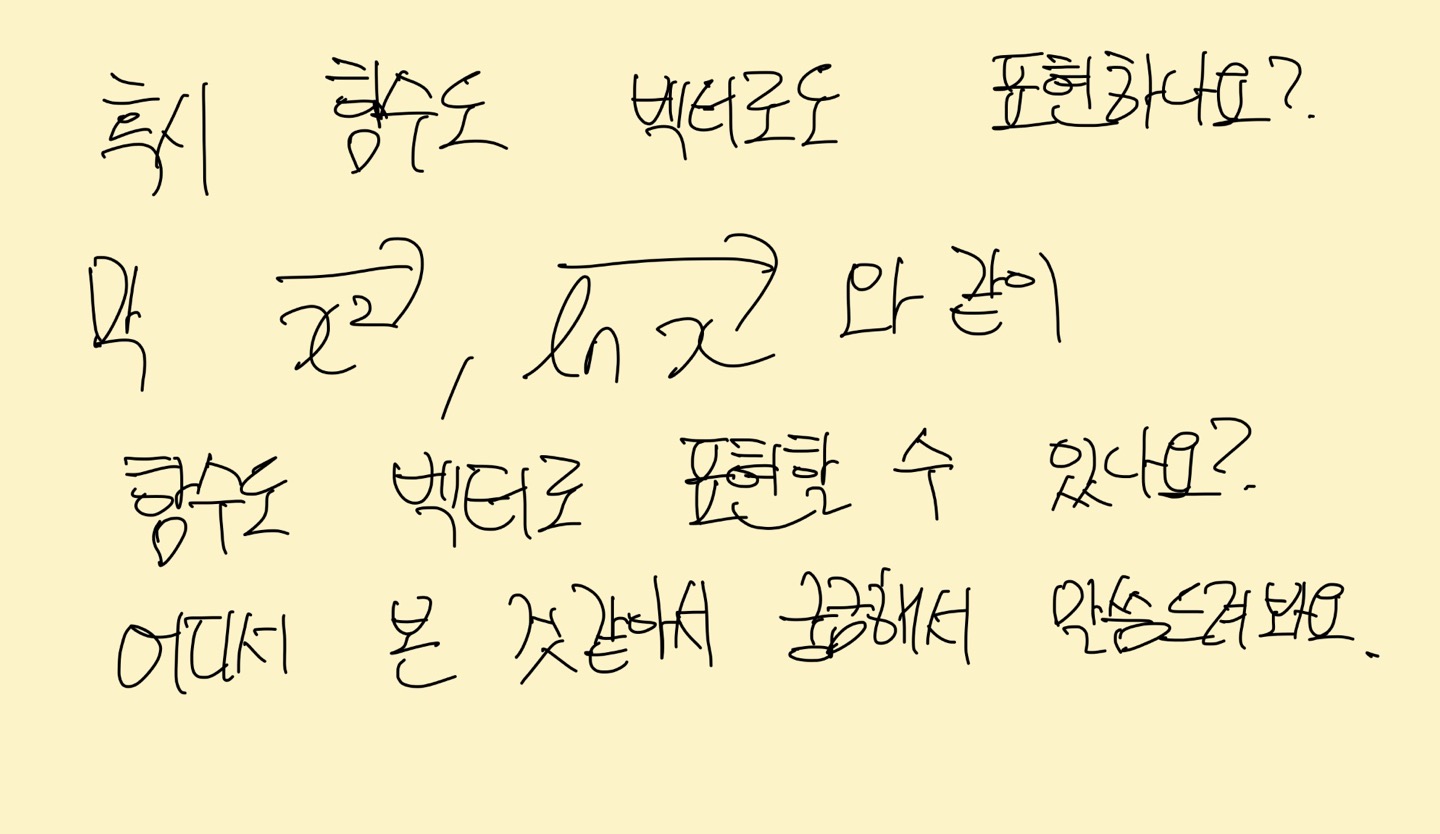 혹시 함수도 벡터로도 표현하나요?
막 $\overrightarrow{x^2}$, $\overrightarrow{\ln x}$ 와 같이
함수도 벡터로 표현할 수 있나요?
어디서 본 것 같아서 궁금해서 말씀드려봐요.